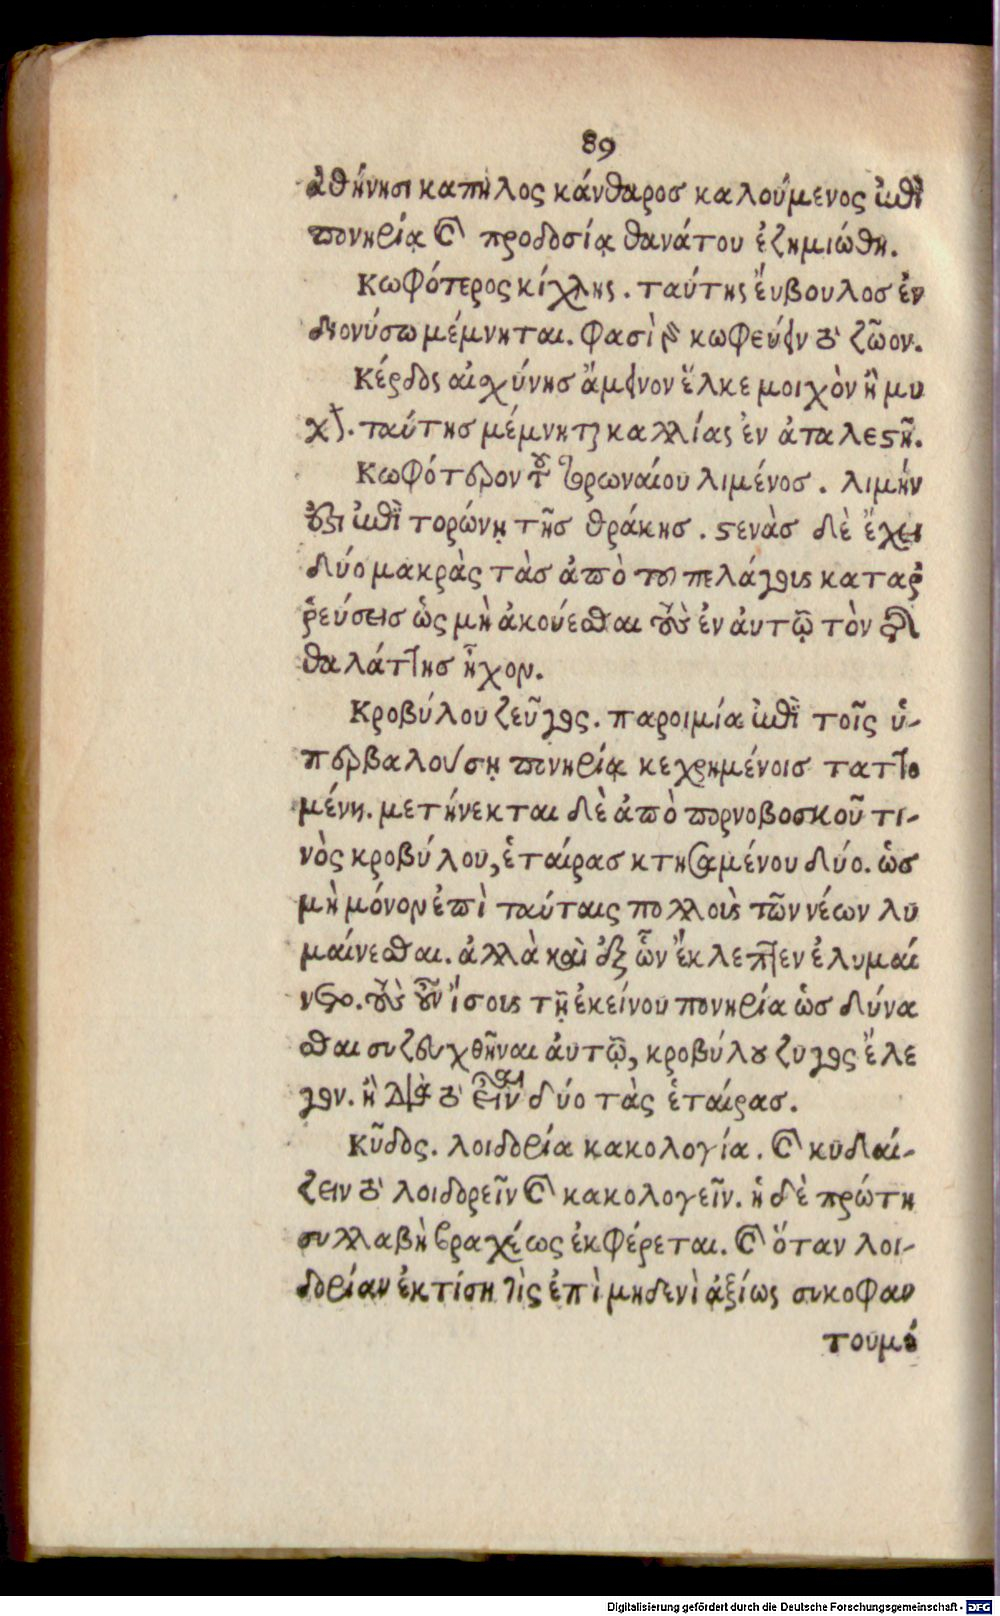 89
ἀθήνησι καπηλος κάνθαρος καλούμενος ἐπὶ
πονηρίᾳ καὶ προδοσίᾳ θανάτου ἐζημιώθη.
Κωφότερος κίχλης. ταύτης ἔυβουλος ἐν
διονύσω μέμνηται. φασὶ γὰρ κωφεύειν τὸ ζῶον.
Κέρδος αἰσχύνης ἄμεινον ἕλκε μοιχὸν ἢ μυ
χόν. ταύτης μέμνηται καλλίας ἐν ἀταλεστῆ.
Κωφότερον τοῦ τορωναίου λιμένος. λιμήν
ἐστι ἐπὶ τορώνῃ τῆς θράκης. στενὰς δὲ ἔχει
δύο μακρὰς τὰς ἀπὸ του πελάγους καταρ
ῥεύσεις ὡς μὴ ἀκούεσθαι τοὺς ἐν ἀυτῷ τὸν τῆς
θαλάττης ἦχον.
Κροβύλου ζεῦγος. παροιμία ἐπὶ τοῖς ὑ-
περβαλούσῃ πονηρίᾳ κεχρημένοις ταττο
μένη. μετήνεκται δὲ ἀπὸ πορνοβοσκοῦ τι-
νὸς κροβύλου, ἑταίρας κτησαμένου δύο. ὡς
μὴ μόνον ἐπὶ ταύταις πολλοὺς τῶν νέων λυ
μαίνεσθαι. ἀλλὰ καὶ ἐξ ὧν ἔκλεπτεν ἐλυμαί
νετο. τοὺς οὖν ἴσους τῇ ἐκείνου πονηρία ὡς δύνα
σθαι συζευχθῆναι ἀυτῷ, κροβύλου ζυγος ἔλε
γον. ἢ διὰ τὸ εἶναι δύο τὰς ἑταίρας.
Κῦδος. λοιδορία κακολογία. καὶ κυδαί-
ζειν τὸ λοιδορεῖν καὶ κακολογεῖν. ἡ δὲ πρώτη
συλλαβὴ βραχέως ἐκφέρεται. καὶ ὅταν λοι-
δορίαν ἐκτίσῃ τὶς ἐπὶ μηδενὶ ἀξίως συκοφαν
τουμέ
Digitalisierung gefördert durch die Deutsche Forschungsgemeinschaft - DFG